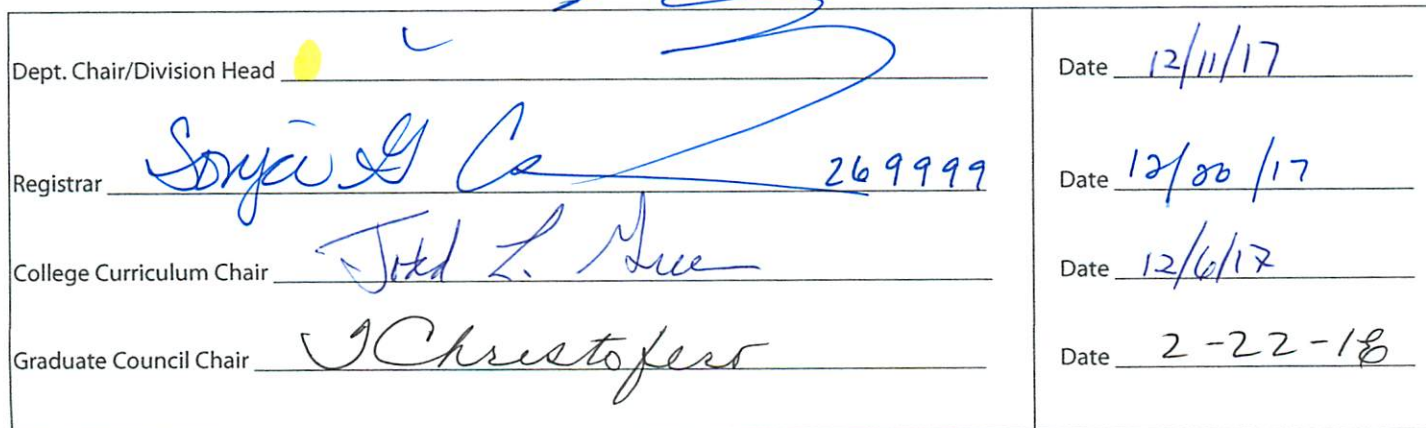 Dept. Chair/Division Head Date 12/11/17
Registrar Sonja G 269999 Date 12/20/17
College Curriculum Chair Todd L. Green Date 12/6/17
Graduate Council Chair Christofero Date 2-22-18